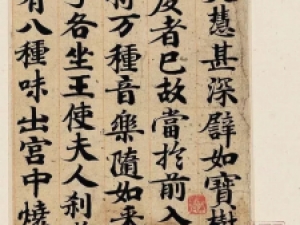 慧甚深譬如寶樹
者已故當於前入
万種音樂隨如来
各坐王使夫人刹
有八種味出宮中燒